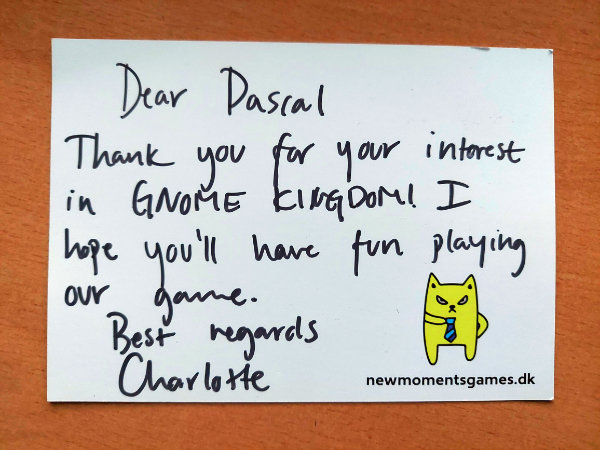 Dear Pascal
Thank you for your interest
in GNOME KINGDOM! I
hope you'll have fun playing
our game.
Best regards
Charlotte
newmomentsgames.dk